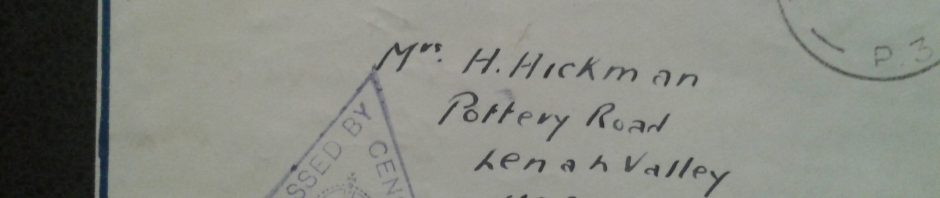 Mrs. H. Hickman
Pottery Road
Lenah Valley
SSED BY
CEN
P. 3